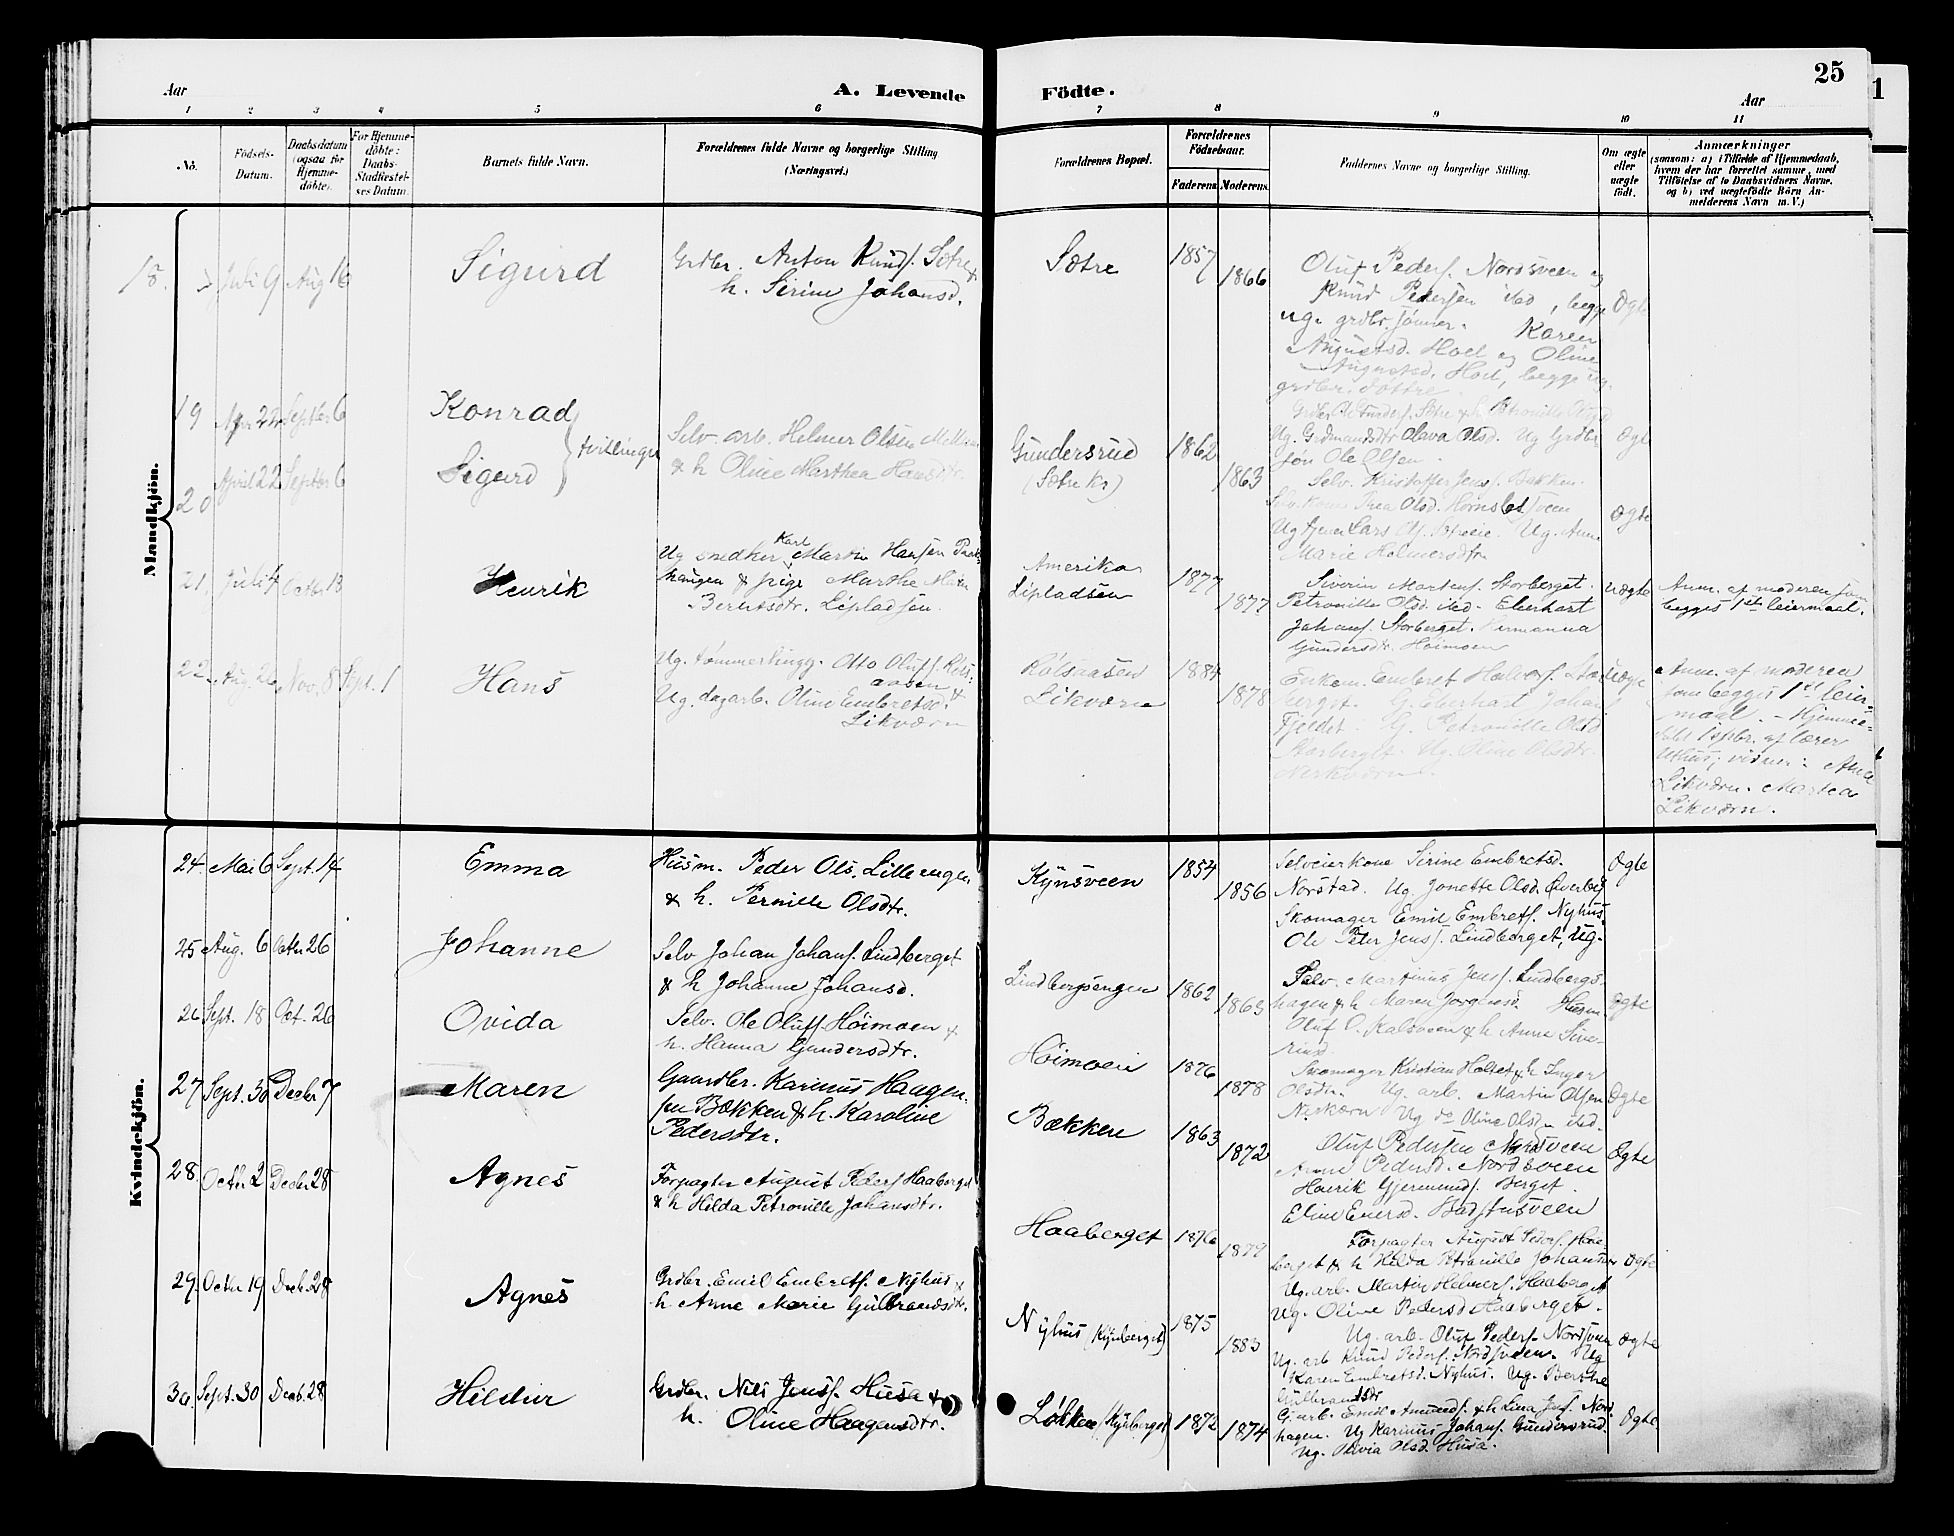 25
1
Aar
A. Levende
Födte.
Aar
1 2 3 4 5 6 7 8 9 10 11
No.
Födsels-
Datum.
Daabsdatum
(ogsaa for
Hjemme-
döbte).
For Hjemme-
döbte:
Daabs-
Stadfæstel-
ses Datum.
Barnets fulde Navn.
Forældrenes fulde Navne og borgerlige Stilling
(Næringsvei.)
Forældrenes Bopæl.
Forældrenes
Födselsaar.
Faderens Moderens
Faddernes Navne og borgerlige Stilling.
Om ægte
eller
uægte
födt.
Anmærkninger
(saasom: a) i Tilfælde af Hjemmedaab,
hvem der har forrettet samme, med
Tilföielse af to Daabsvidners Navne,
og b) ved uægtefödte Börn An-
melderens Navn m. V.)
Mandkjön.
18. Juli 9 Aug 16
Sigurd
Grdbr. Anton Knuds. Sætre &
h. Sirine Johansd.
Sætre
1857
1866
Oluf Peders. Nordsveen og
Knud Pedersen ibd, begge
ug. grdbr. sønner. Karen
Augustsd. Hoel og Oline
Augustsd. Hoel, begge ug.
grdbr. døttre
Ægte
19 Apr 22 Septbr 6
Konrad
20 April 22 Septbr 6
Sigurd
tvillinger
Selv. arb. Helmer Olsen
& h Oline Marthea Hansdtr.
Gundersrud
(Sætre kr)
1862
1863
Ug. Grdmandsdtr Olava Olsd. Ug Grdbr
søn Ole Olsen.
Selv. Kristoffer Jens. Bakken.
Selv. kone Thea Olsd. Hornsletsveen
Ug. Anne
Marie Helmersdtr
Ægte
Ægte
21. Juli 4 Octbr 13
Henrik
Ug snedker Karl Martin Hansen
haugen & pige Marthe
Berntsdtr. Lipladsen.
Amerika
Lipladsen
1877
1877
Siverin Martens. Storberget.
Petronille Olsd. ibd. Eberhart
Johans. Storberget. Hermanna
Gundersdtr. Høimoen
uægte
Anm. af moderen som
begges 1ste leiermaal.
22. Aug. 26 Nov. 8 Sept. 1
Hans
Ug. tømmerhugg. Otto Olufs. Kols-
aasen &
Ug. dagarb. Oline Embretsd.
Likværn
Kolsaasen
Likværn
1884
1878
Enkem. Embret Halvors. Stor-
berget. G. Eberhart Johans
Fjeldet. Ug. Petronille Olsd
Storberget. Ug. Oline Olsdtr.
Neskværn.
uægte
Anm. af moderen
som begges 1ste leier-
maal. – Hjemme-
døbt 1 spbr. af lærer
vidner: Anna
Likværn. Martea
Likværn.
Kvindekjön.
24. Mai 6 Sept. 14
Emma
Husm. Peder Ols. Lilleengen
& h. Pernille Olsdtr.
Kynsveen
1854
1856
Selveierkone Sirine Embretsd.
Norstad. Ug. Jonette Olsd. Øverby
Skomager Emil Embrets. Nyhus.
Ole Peter Jens. Lindberget, Ug.
Ægte
25 Aug. 6 Octbr 26
Johanne
Selv Johan Johans. Lindberget
& h Johanne Johansd.
Lindbergsengen
1862
1863
Selv. Martinus Jens. Lindbergs-
hagen & h Maren Jørgensd. Husm
Oluf O. Kalsveen & h Anne Sive-
rinsd.
Ægte
26 Sept. 18 Oct. 26
Ovida
Selv. Ole Olufs. Høimoen &
h. Hanna Gundersdtr.
Høimoen
1876
1878
Skomager Kristian Holtet & h Inger
Olsdtr. Ug. arb. Martin Olsen
Neskværn Ug do Oline Olsdtr ibd.
Ægte
27 Sept. 30 Decbr 7
Maren
Gaardbr. Karinus Haagen-
sen Bækken & h. Karoline
Pedersdtr.
Bækken
1863
1872
Oluf Pedersen Nordsveen
Anne Pedersd. Nordsveen
Henrik Gjermunds. Berget.
Eline Eversd. Badstusveen
Ægte
28. Octbr 2 Decbr 28
Agnes
Forpagter August Peders Haaberget
& h Hilda Petronille Johansdtr.
Haaberget
1876
1879
Forpagter August Peders. Haa-
berget & h Hilda Petronille Johansdtr
Ug. arb. Martin Helmers. Haaberget
Ug. Oline Pedersd Haaberget.
Ægte
29. Octbr 19 Decbr 28
Agnes
Grdbr. Emil Embrets. Nyhus &
h. Anne Marie Gulbrandsdtr.
Nyhus (Kynberget)
1875
1883
Ug. arb. Oluf Peders. Nordsveen
Ug. arb Knud Peders. Nordsveen. Ug
Karen Embretsd. Nyhus. Ug. Berthe
Gulbrandsdtr
Ægte
30. Sept. 30 Decb. 28
Hildur
Grdbr. Nils Jenss. Husa &
h. Oline Haagensdtr.
Løkken (Kynberget)
1872
1874
G. arb. Emil Amunds. & h Lina Jens. Nord-
hagen. Ug Karinus Johans. Gundersrud.
Ug. Olivia Olsd. Husa.
Ægte